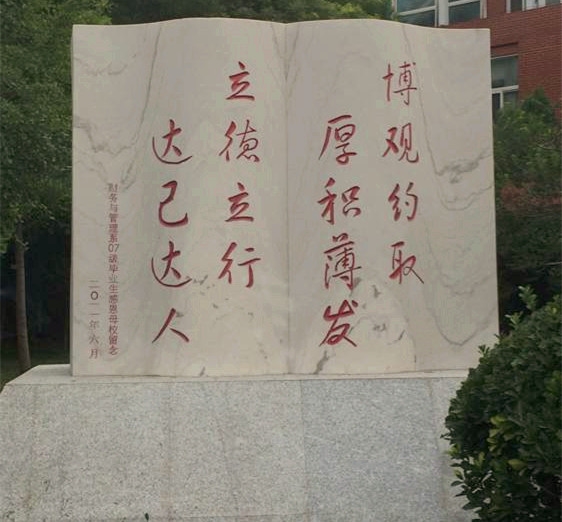 博观约取
厚积薄发
立德立行
达己达人
财务与管理系07级毕业生感恩母校留念
二〇一一年六月